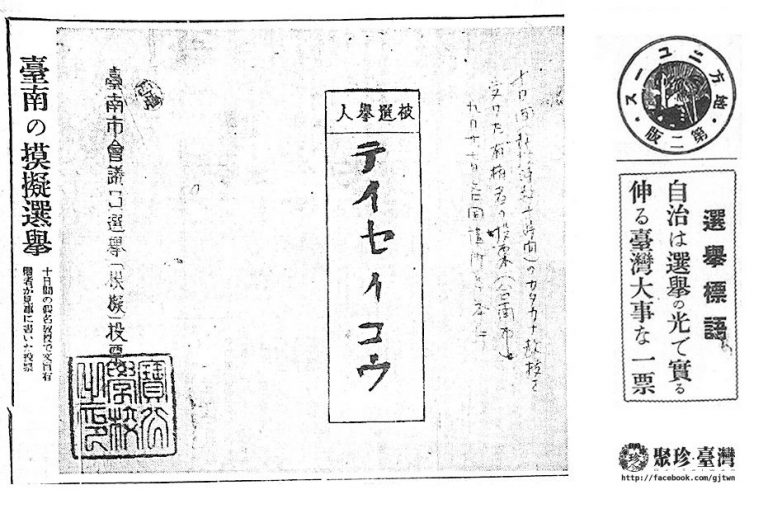 臺南の摸擬選擧
十日間の假名敎授で文盲有
權者が見事に書いた投票
臺南市會議員選擧「摸擬」投票
寶公
學校
之印
被選擧人
テイセイコウ
十日間 のカタカナ敎授を
受けた有権者の投票(台南市
地方ニユース
第二版
選擧標語
自治は選擧の光で實る
伸る臺灣大事な一票
珍
聚珍·臺灣
http://facebook.com/gjtwn